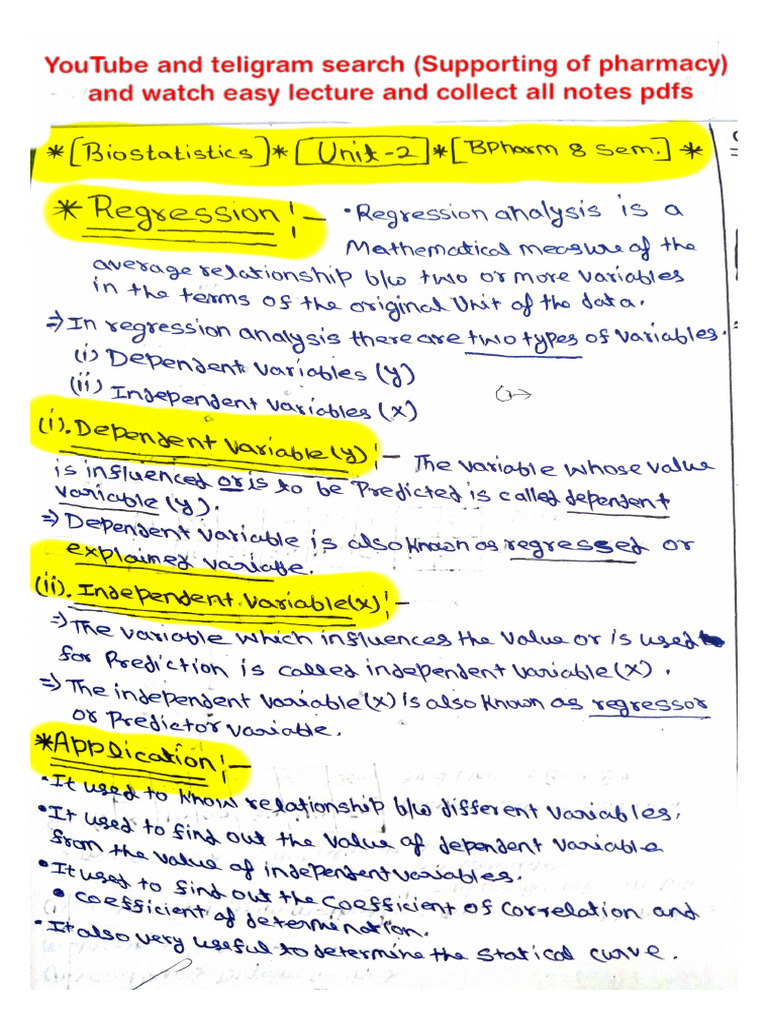 YouTube and teligram search (Supporting of pharmacy)
and watch easy lecture and collect all notes pdfs
*[Biostatistics]*[Unit-2]*[BPharm 8 Sem.]*
*Regression:- •Regression analysis is a
Mathematical measure of the
average relationship b/w two or more variables
in the terms of the original Unit of the data.
⇒ In regression analysis there are two types of variables.
(i) Dependent Variables (y)
(ii) Independent Variables (x)
(i). Dependent Variable (y):- The variable whose value
is influenced or is to be Predicted is called dependent
variable (y).
⇒ Dependent Variable is also known as regressed or
explained variable.
(ii). Independent Variable(x):-
⇒ The variable which influences the value or is used
for Prediction is called independent variable (x).
⇒ The independent variable (x) is also known as regressor
or Predictor variable.
*Application:-
•It used to know relationship b/w different variables.
•It used to find out the value of dependent variable
from the value of independent variables.
•It used to find out the coefficient of correlation and
• coefficient of determination.
•It also very useful to determine the statical curve.